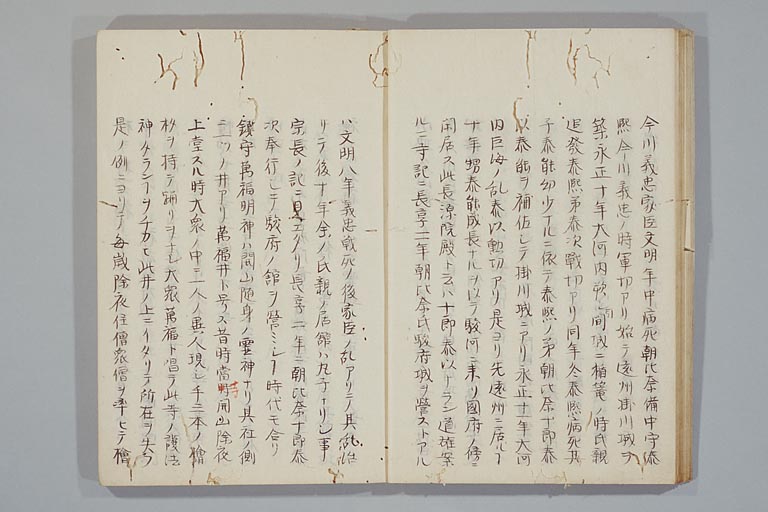 今川義忠家臣文明年中病死朝比奈備中守泰
熈今川義忠ノ時軍功アリ始テ遠州掛川城ヲ
築永正十年大河内欣ト間城ニ楯篭ノ時氏親
進發泰熈弟泰次戰功アリ同年冬泰熈病死其
子泰能幼少タルニ依テ泰熈ノ弟朝比奈十郎泰
以泰能ヲ補佐シテ掛川城ニアリ永正十年大河
内巨海ノ乱泰以勲功アリ是ヨリ先遠州ニ居ルヿ
十年甥泰能成長ナルヲ以テ駿河ニ来リ國府ノ傍ニ
閑居ス此長源院殿ト云ハ十郎泰以ナラン道雄案
ルニ寺記ニ長享二年朝比奈氏駿府城ヲ營ストアル
ハ文明八年義忠戰死ノ後家臣ノ乱アリテ其乱治
リテ後十年余ノ氏親ノ居館ハ九子ナリシ事
宗長ノ記ニ見エタリ長享二年ニ朝比奈十郎泰
次奉行シテ駿府ノ館ヲ營ミシヿ時代モ合リ
鎮守萬福明神ハ開山随身ノ靈神ナリ其社ノ側
ニ一ツノ井アリ萬福井ト号ス昔時當寺開山除夜
上堂スル時大衆ノ中ニ二人ノ異人現レ手ニ本ノ檜
杓ヲ持テ踊リヲナシ大衆萬福ト唱テ此寺ノ護法
神タランヿヲチカヒ此井ノ上ニイタリテ所在ヲ失フ
是ノ例ニヨリテ毎歳除夜住僧衆僧ヲ率ヒテ檜